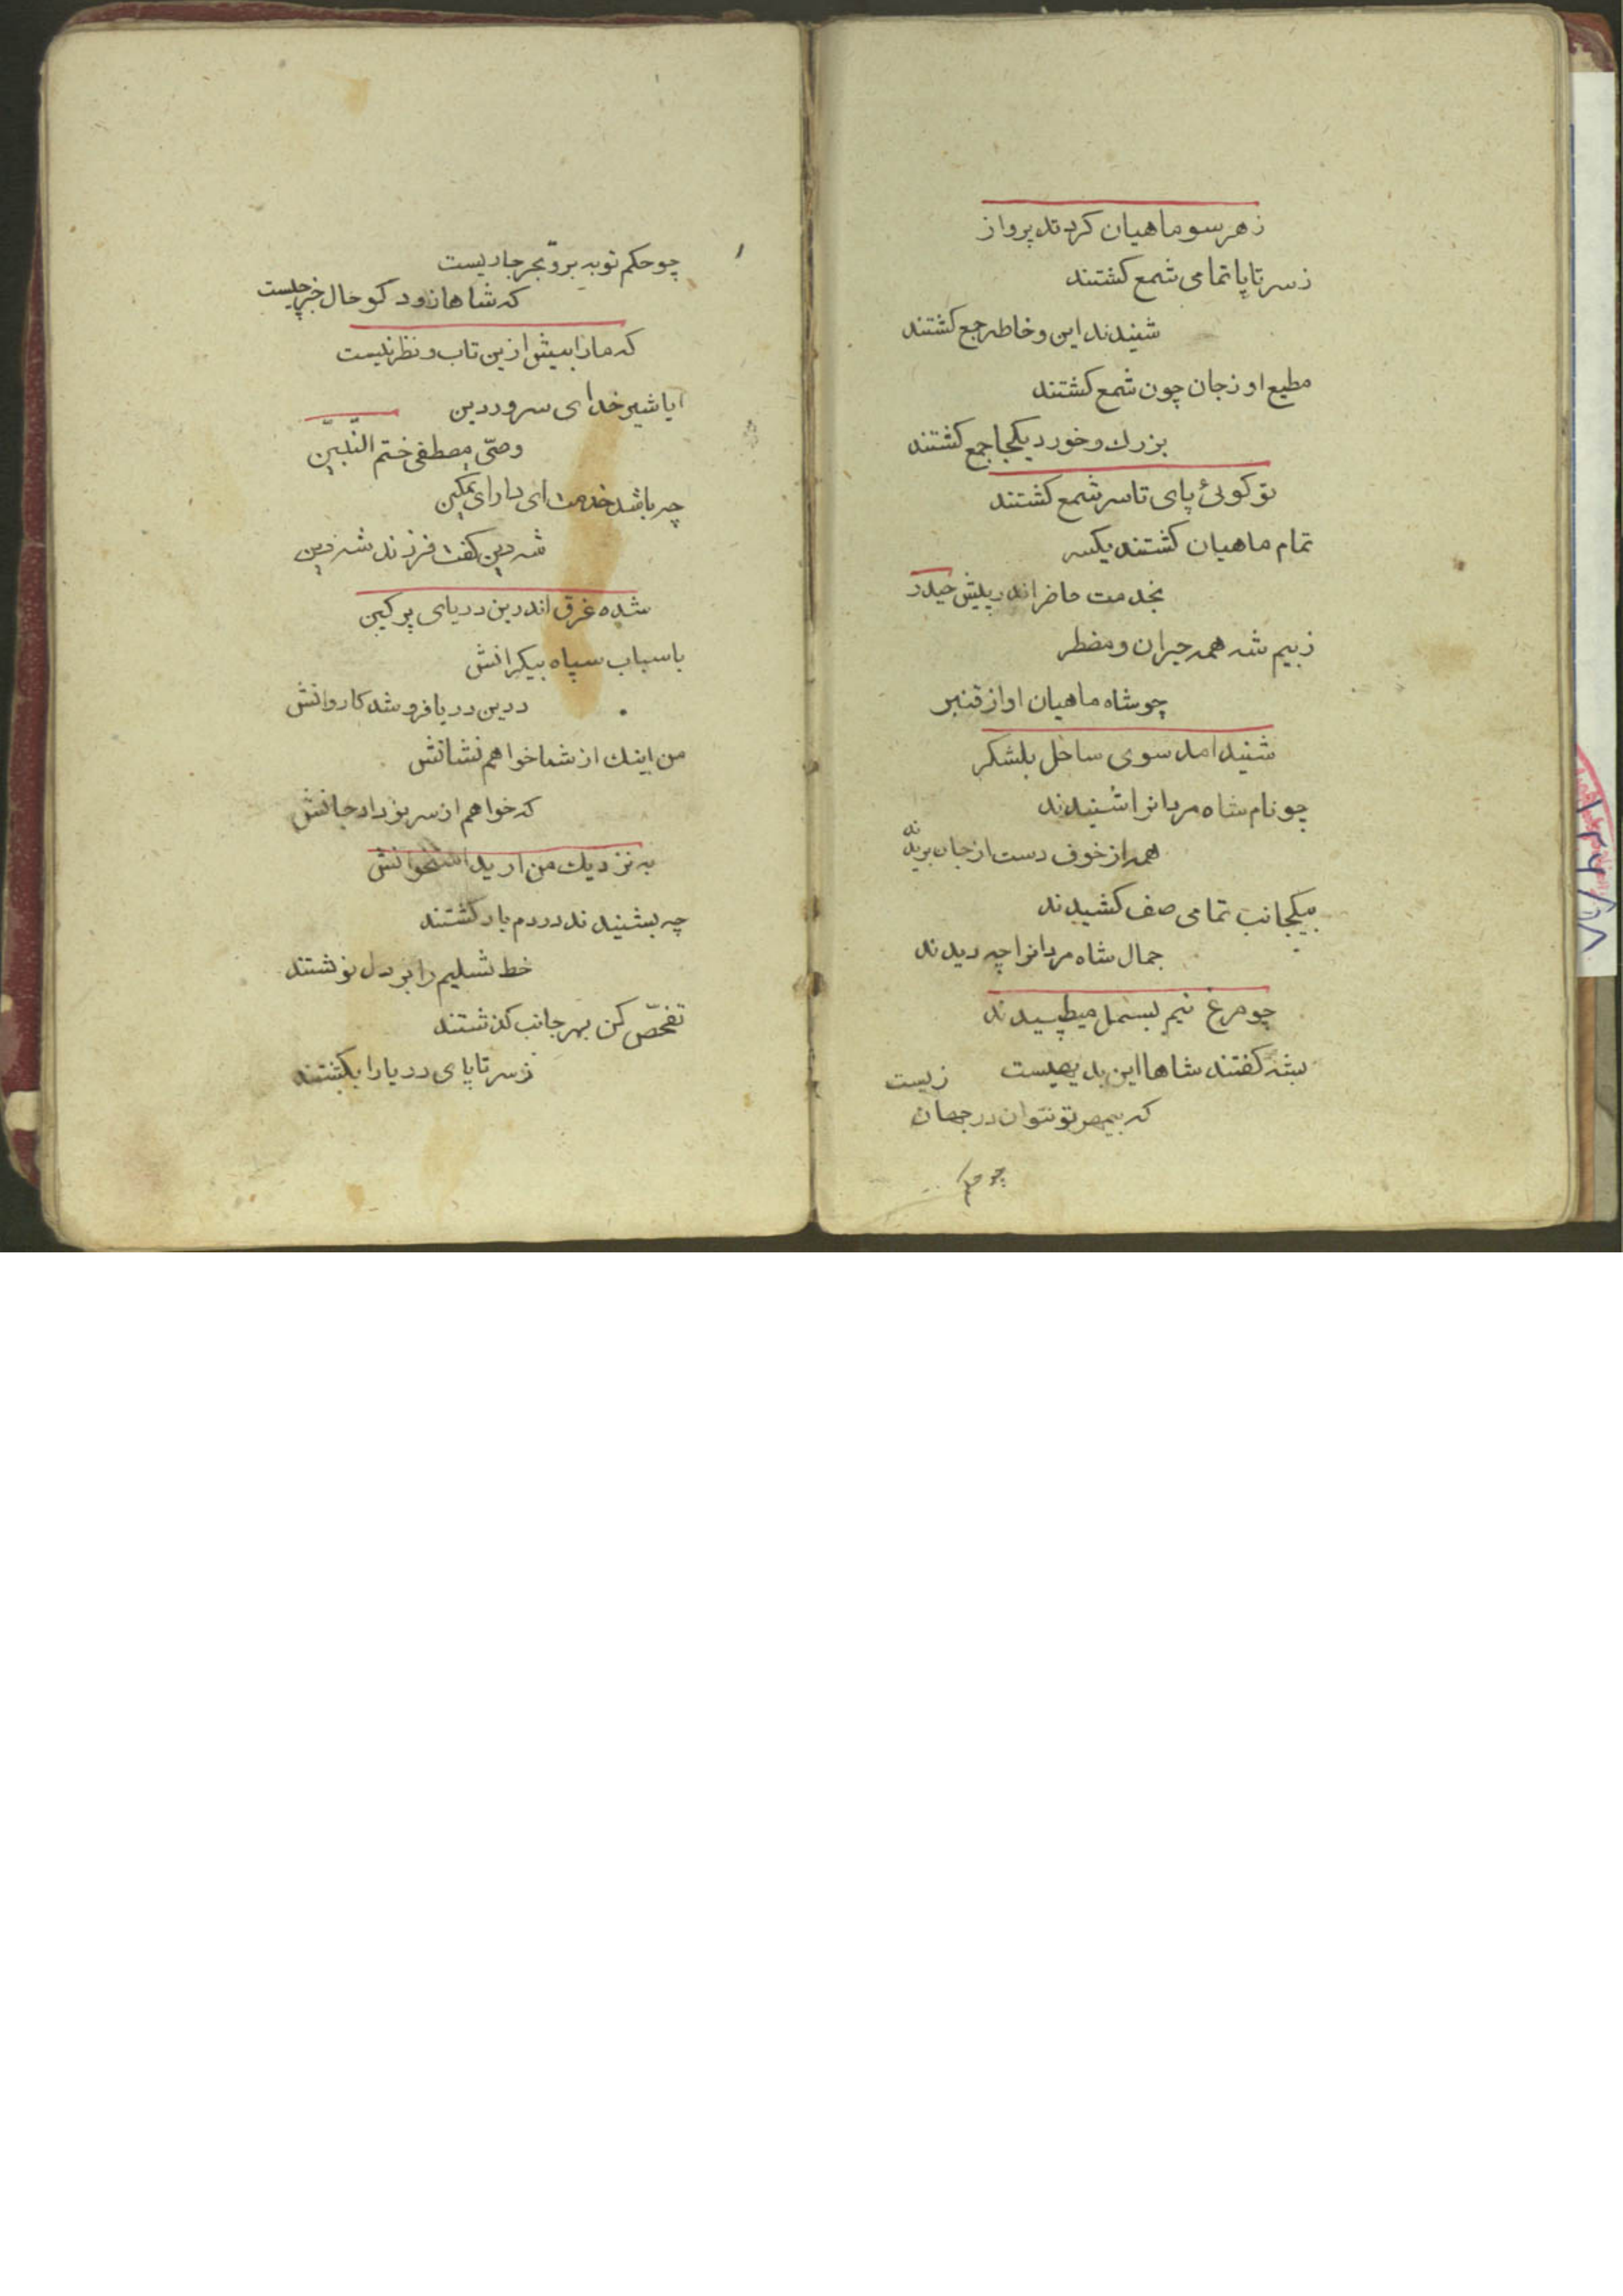 زهرسو ماهیان کردند پرواز
زسر تا پا تمامی شمع کشتند
شنیدند این و خاطر جمع کشتند
مطیع او زجان چون شمع کشتند
بزرك و خورد یکجا جمع کشتند
تو کوئی پای تا سر شمع کشتند
تمام ماهیان کشتند یکسر
بخدمت حاضر اندر پیش حیدر
زبیم شه همه حیران و مضطر
چو شاه ماهیان اواز قنبر
شنید امد سوی ساحل بلشکر
چو نام شاه مردانرا شنیدند
همه از خوف دست از جان بریدند
بیکجانب تمامی صف کشیدند
جمال شاه مردانرا چه دیدند
چو مرغ نیم بسمل میطپیدند
بشه کفتند شاها این بدیهیست
که بیمهر تو نتوان در جهان زیست
چو حکم
چو حکم تو به بر و بحر جاریست
که شاها زود کو حال خبر چیست
که مارا بیش ازین تاب و نظر نیست
ایا شیر خدا ای سرور دین
وصیّ مصطفی ختم النّبیّن
چه باشد خدمت ای دارای تمکین
شه دین کفت فرزند شه دین
شده غرق اندرین دریای پر کین
باسباب سپاه بیکرانش
درین دریا فرو شد کاروانش
من اینك از شما خواهم نشانش
که خواهم از سر نو داد جانش
به نزدیك من ارید استخوانش
چه بشنیدند در دم باز کشتند
خط تسلیم را بر دل نوشتند
تفحّص کن بهر جانب کذشتند
زسر تا پای دریا را بکشتند